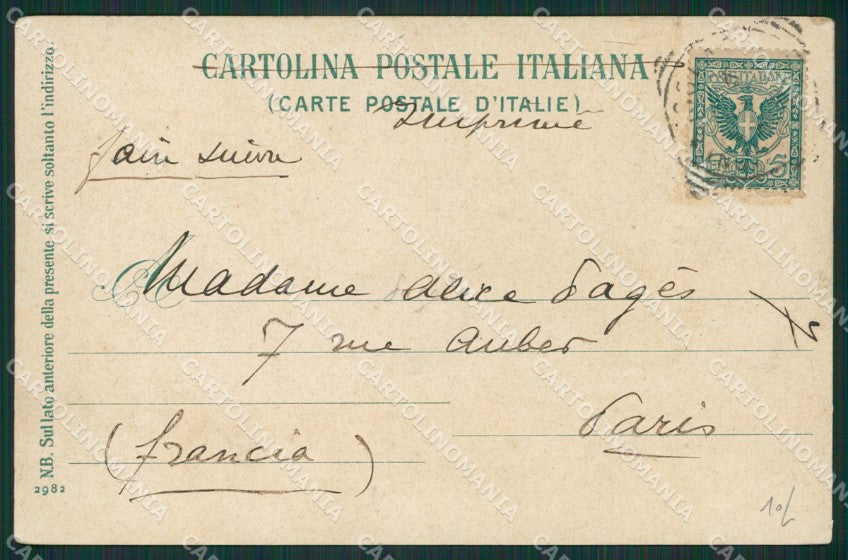 CARTOLINA POSTALE ITALIANA
(CARTE POSTALE D'ITALIE)
Imprimé
faire suivre
Madame Alice Pagès
7 rue Auber
Paris
(Francia)
N.B. Sul lato anteriore della presente si scrive soltanto l'indirizzo.
2982
5
CARTOLINOMANIA